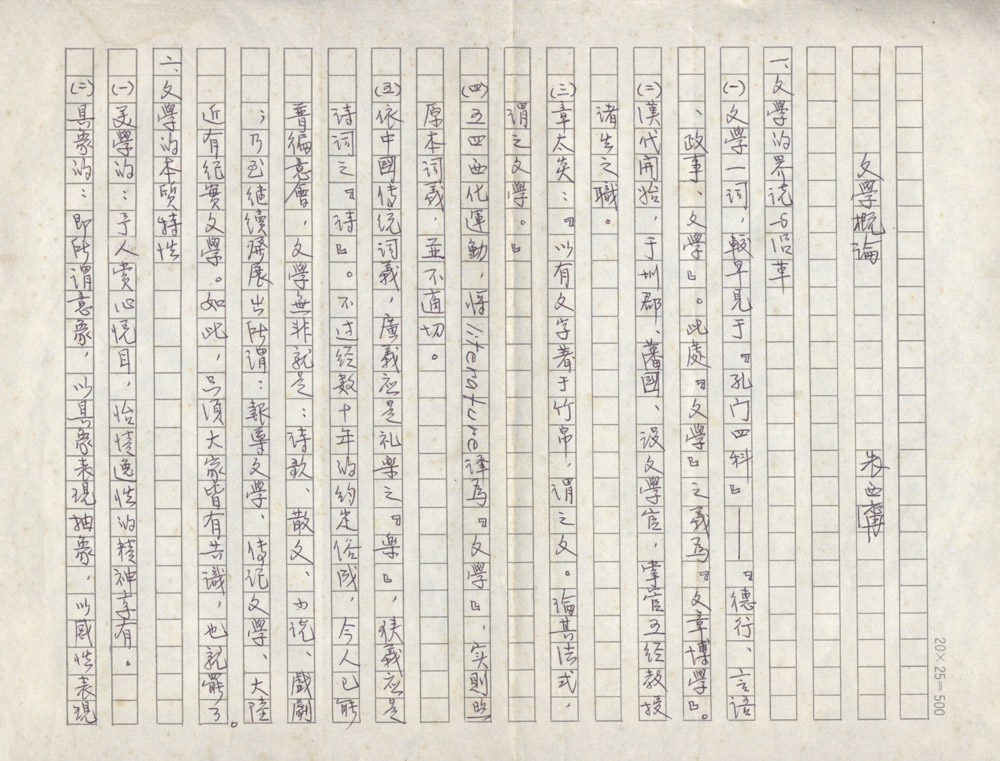 文學概論
朱西甯
一、文學的界说与沿革
(一)文學一词，較早見于『孔门四科』——『德行、言語
、政事、文學』。此處『文學』之義為『文章博學』。
(二)漢代開始，于州郡、藩國、设文學官，掌官五经教授
諸生之職。
(三)章太炎：『以有文字著于竹帛，谓之文。論其法式，
谓之文學。』
(四)五四西化運動，将literature譯為『文學』，实則照
原本词義，並不适切。
(五)依中國传统词義，廣義应是礼樂之『樂』，狭義应是
诗词之『诗』。不过经数十年的约定俗成，今人已能
普徧意會，文學無非就是：诗歌、散文、小说、戲劇
；乃至继续發展出所谓：報導文學、传记文學、大陸
近有纪實文學。如此，只須大家皆有共識，也就罷了。
二、文學的本质特性
(一)美學的：予人賞心悦目，怡情逸性的精神享有。
(二)具象的：即所谓意象，以具象表現抽象，以感性表現
20×25=500